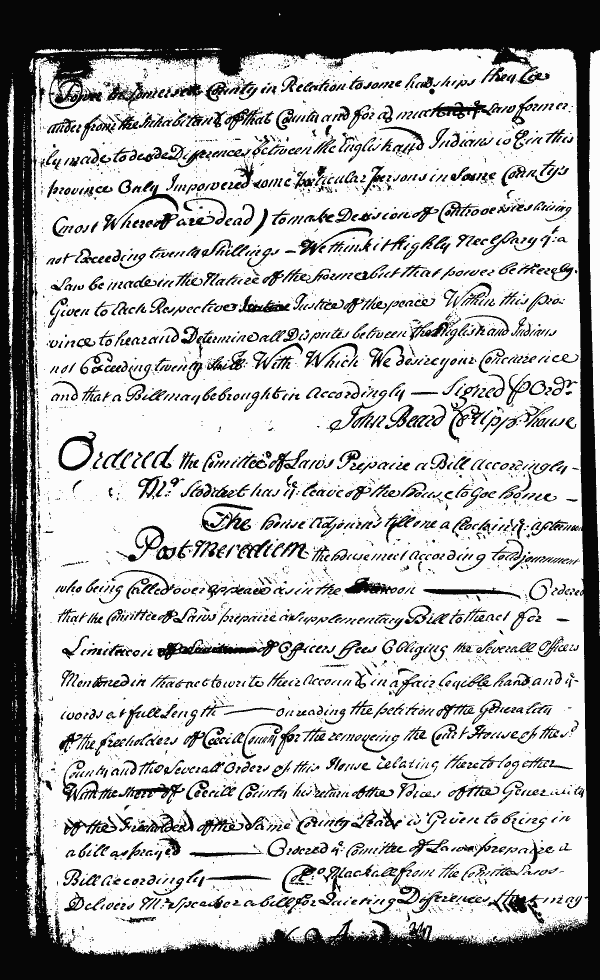 Tower in Somersett County in Relation to some hardships they Lie
under from the Inhabitants of that County and for as much Law former
ly made to decide Differences between the English and Indians is in this
province Only Impowered some particular Persons in Some County's
(most Whereof are dead) to make Decision off Controversies
not Exceeding twenty Shillings - We think it Highly Necessary yt a
Law be made in the Nature of the former but that power be thereby
Given to Each Respective Justice of the peace Within this pro-
vince to hear and Determine all Disputes between the English and Indians
not Exceeding twenty With Which We desire your Concurrence
and that a Bill may be brought in Accordingly — Signed p Ordr
John Beard Cl Upp. house
Ordered the Comittee of Laws Prepaire a Bill Accordingly -
Mr. Stoddert has ye leave off the house to Goe home -
The house Adjourns till one a Clock in ye afternoon
Post Merediem the house meet according to adjournment
who being Called over appeare as in the noon — Ordered
that the Comittee of Laws prepaire a supplementary Bill to the act for -
Limitacon of Officers ffees Obliging the Severall Officers
Mentoned in that act to write their Account in a fair Legible hand and ye
words at full Length — on reading the petition of the Generality
off the freeholders of Cecill County for the removeing the Court House of the sd
County and the Severall Orders of this House relating thereto together
With the off Cecill County his return of the Voices off the Generality
of the freeholders of the Same County Leave is Given to bring in
a bill as prayed — Ordered ye Comittee of Laws prepaire a
Bill Accordingly — Mackall from the Comitte Laws -
Delivers Mr. Speaker a bill for Quieting Differences that may